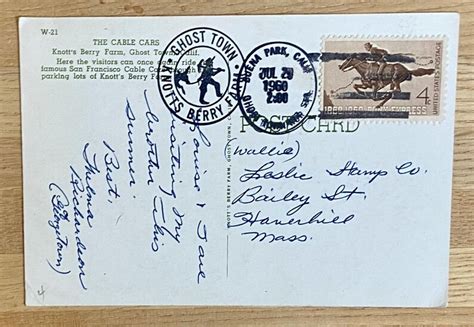 W-21
THE CABLE CARS
Knott's Berry Farm, Ghost Town, Calif.
Here the visitors can once again ride
famous San Francisco Cable Cars through
parking lots of Knott's Berry Farm
GHOST TOWN
KNOTTS BERRY FARM
BUENA PARK, CALIF.
JUL 28
1960
2:00
GHOST TOWN
4¢
UNITED STATES POSTAGE
1860-1960 PONY EXPRESS
POST CARD
KNOTT'S BERRY FARM, GHOST
Louise & I are
visiting my
brother this
summer
Best,
Thelma
Richardson
(Georgetown)
(Wallie)
Leslie Stamp Co.
Bailey St.
Haverhill
Mass.
4